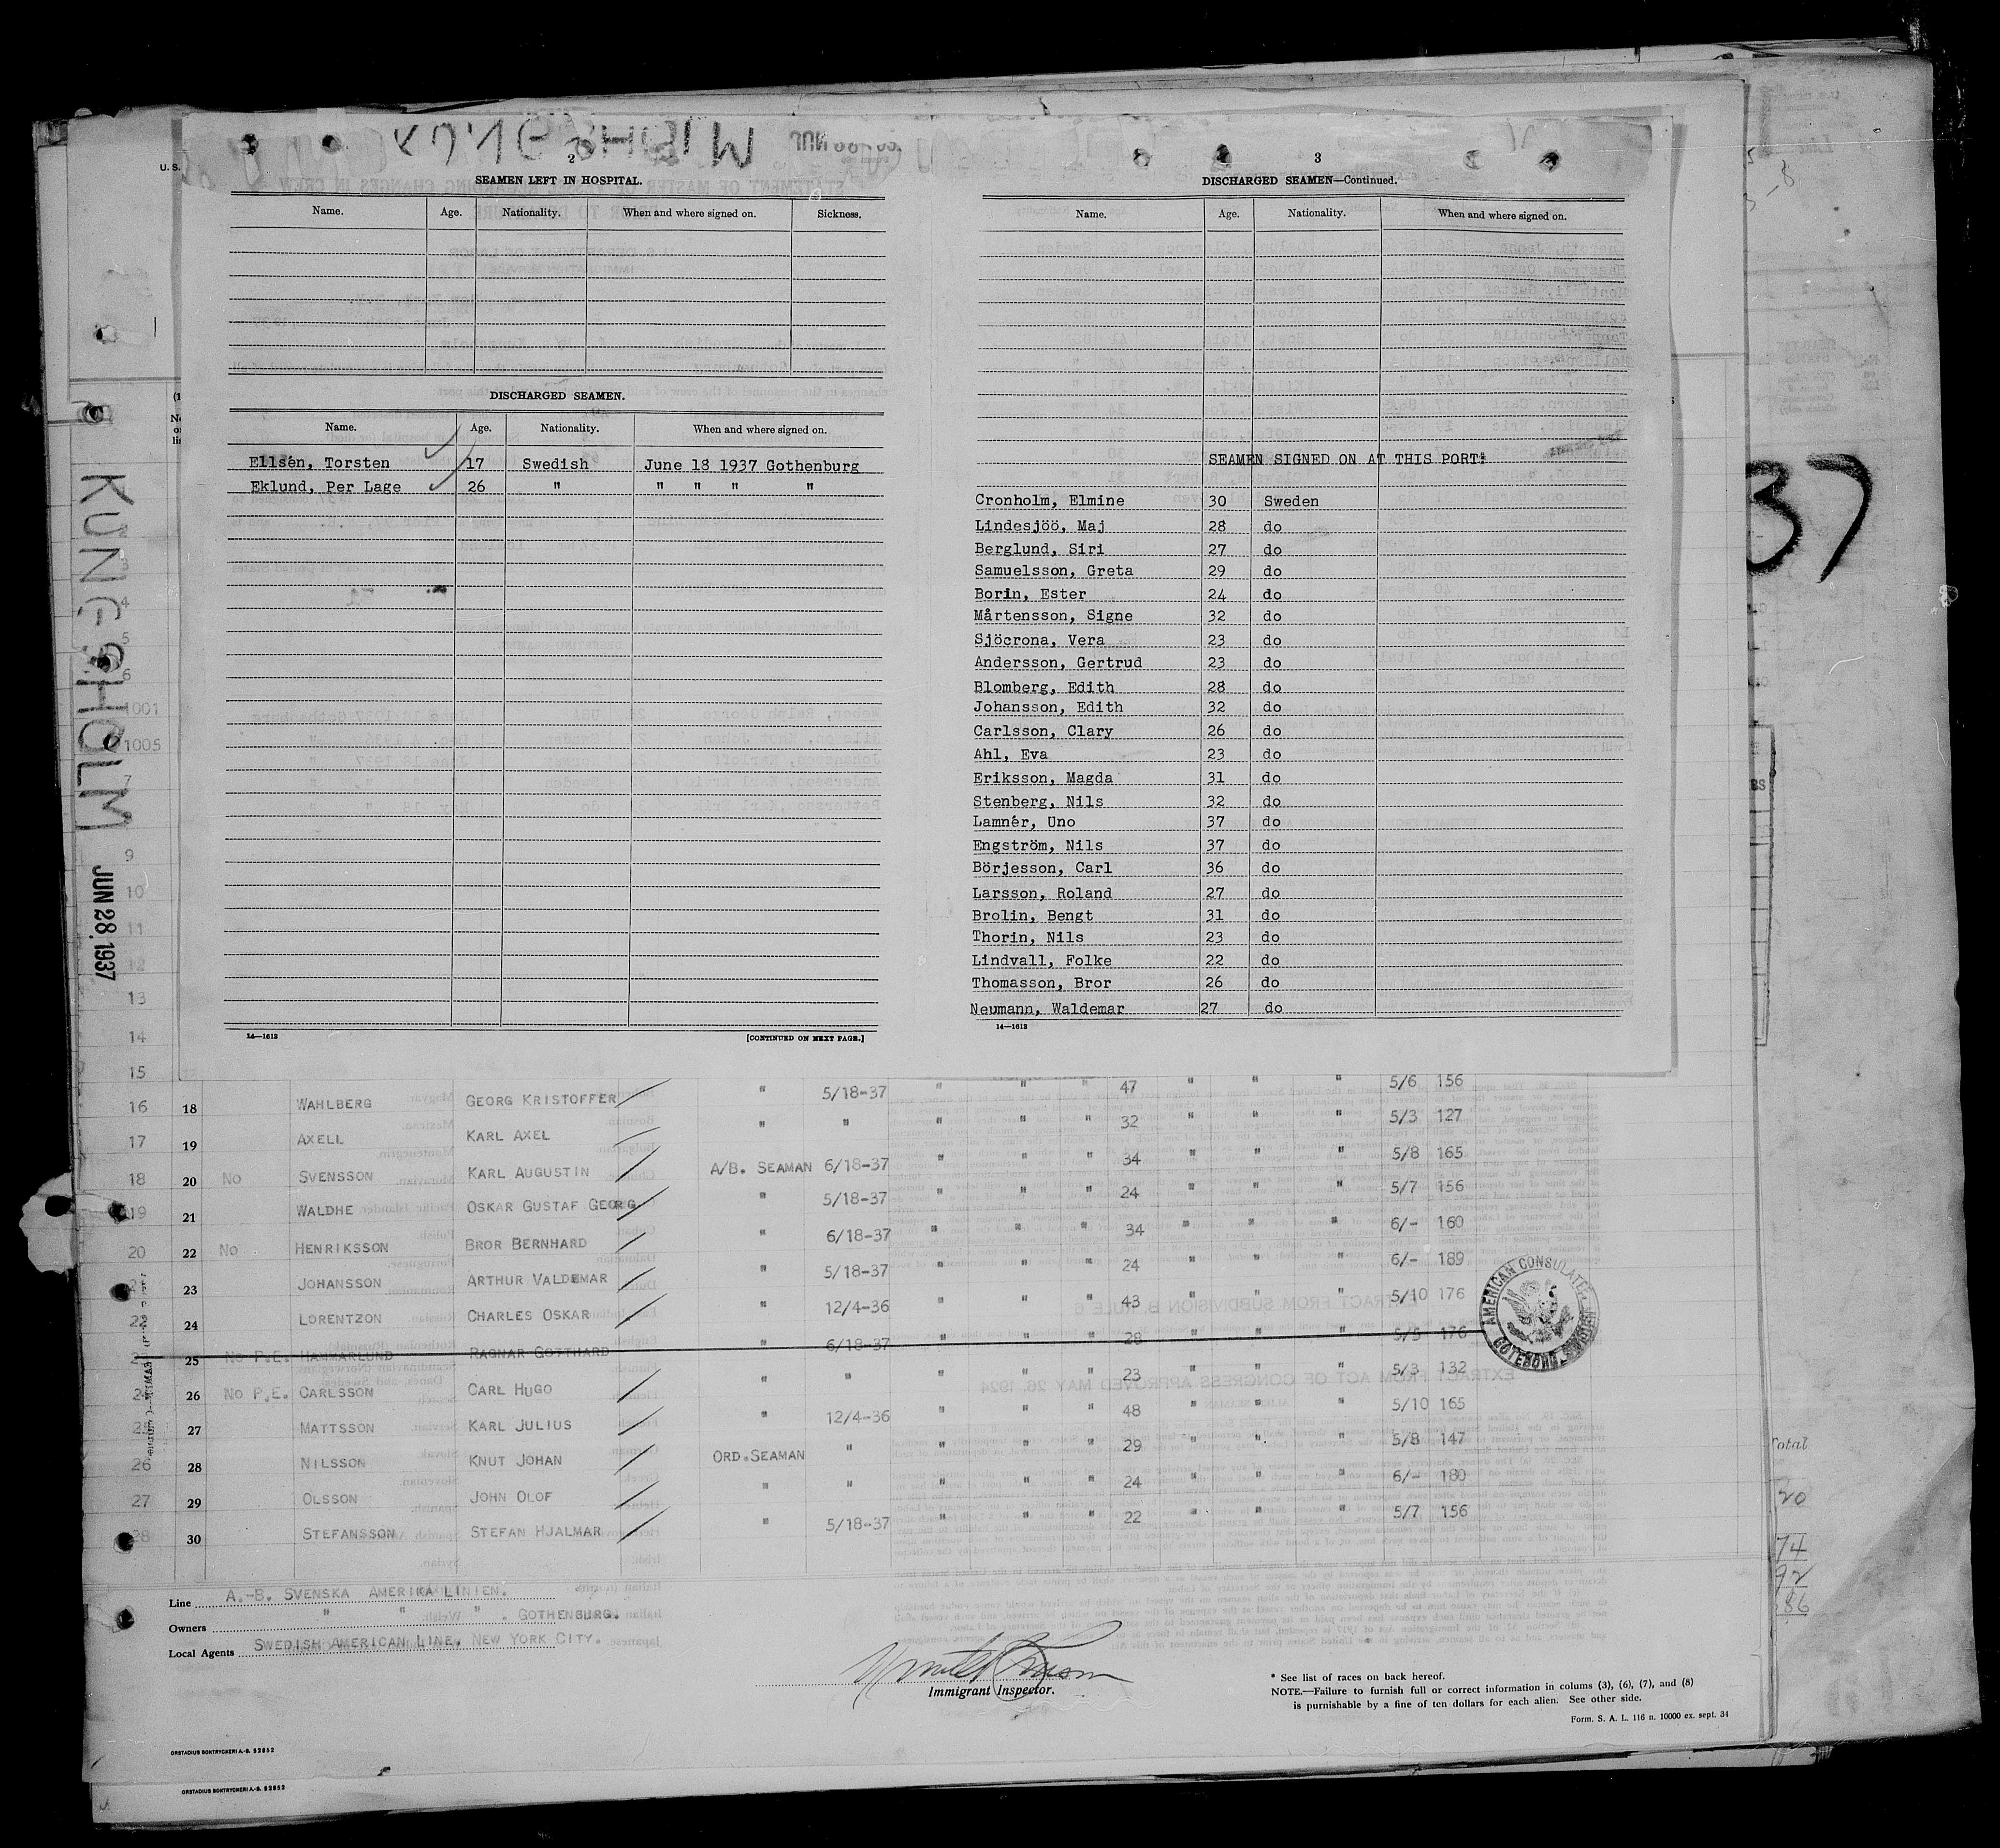 KUNGSHOLM
JUN 28 1937
37
U. S.
2
SEAMEN LEFT IN HOSPITAL.
Name. Age. Nationality. When and where signed on. Sickness.
DISCHARGED SEAMEN.
Name. Age. Nationality. When and where signed on.
Ellsén, Torsten 17 Swedish June 18 1937 Gothenburg
Eklund, Per Lage 26 " " " " "
14—1613
[CONTINUED ON NEXT PAGE.]
3
DISCHARGED SEAMEN—Continued.
Name. Age. Nationality. When and where signed on.
SEAMEN SIGNED ON AT THIS PORT:
Cronholm, Elmine 30 Sweden
Lindesjöö, Maj 28 do
Berglund, Siri 27 do
Samuelsson, Greta 29 do
Borin, Ester 24 do
Mårtensson, Signe 32 do
Sjöcrona, Vera 23 do
Andersson, Gertrud 23 do
Blomberg, Edith 28 do
Johansson, Edith 32 do
Carlsson, Clary 26 do
Ahl, Eva 23 do
Eriksson, Magda 31 do
Stenberg, Nils 32 do
Lamnér, Uno 37 do
Engström, Nils 37 do
Börjesson, Carl 36 do
Larsson, Roland 27 do
Brolin, Bengt 31 do
Thorin, Nils 23 do
Lindvall, Folke 22 do
Thomasson, Bror 26 do
Neumann, Waldemar 27 do
14—1613
3
4
5
6
1001
1005
7
9
10
11
12
13
14
15
" 5/18-37 " " " 47 " " " 5/6 156
16 18 WAHLBERG GEORG KRISTOFFER " " " " " 32 " " " 5/3 127
17 19 AXELL KARL AXEL A/B. SEAMAN 6/18-37 " " " 34 " " " 5/8 165
18 20 No SVENSSON KARL AUGUSTIN " 5/18-37 " " " 24 " " " 5/7 156
19 21 WALDHE OSKAR GUSTAF GEORG " 6/18-37 " " " 34 " " " 6/- 160
20 22 No HENRIKSSON BROR BERNHARD " 5/18-37 " " " 24 " " " 6/- 189
23 JOHANSSON ARTHUR VALDEMAR " 12/4-36 " " " 43 " " " 5/10 176
24 LORENTZON CHARLES OSKAR " 6/18-37 " " " 28 " " " 5/5 176
25 No P.E. HAMMARLUND RAGNAR GOTTHARD " " " " " 23 " " " 5/3 132
24 26 No P.E. CARLSSON CARL HUGO " 12/4-36 " " " 48 " " " 5/10 165
25 27 MATTSSON KARL JULIUS ORD.SEAMAN " " " " 29 " " " 5/8 147
26 28 NILSSON KNUT JOHAN " " " " " 24 " " " 6/- 180
27 29 OLSSON JOHN OLOF " 5/18-37 " " " 22 " " " 5/7 156
28 30 STEFANSSON STEFAN HJALMAR
AMERICAN CONSULATE
GOTEBORG, SWEDEN
Line A.-B. SVENSKA AMERIKA LINIEN.
Owners " " " . GOTHENBURG.
Local Agents SWEDISH AMERICAN LINE, NEW YORK CITY.
Immigrant Inspector.
* See list of races on back hereof.
NOTE.—Failure to furnish full or correct information in colums (3), (6), (7), and (8)
is purnishable by a fine of ten dollars for each alien. See other side.
Form. S. A. L. 116 n. 10000 ex. sept. 34
ORSTADIUS BOKTRYCKERI A.-B. 52852
ORSTADIUS BOKTRYCKERI A.-B. 52852
Total
20
74
92
86